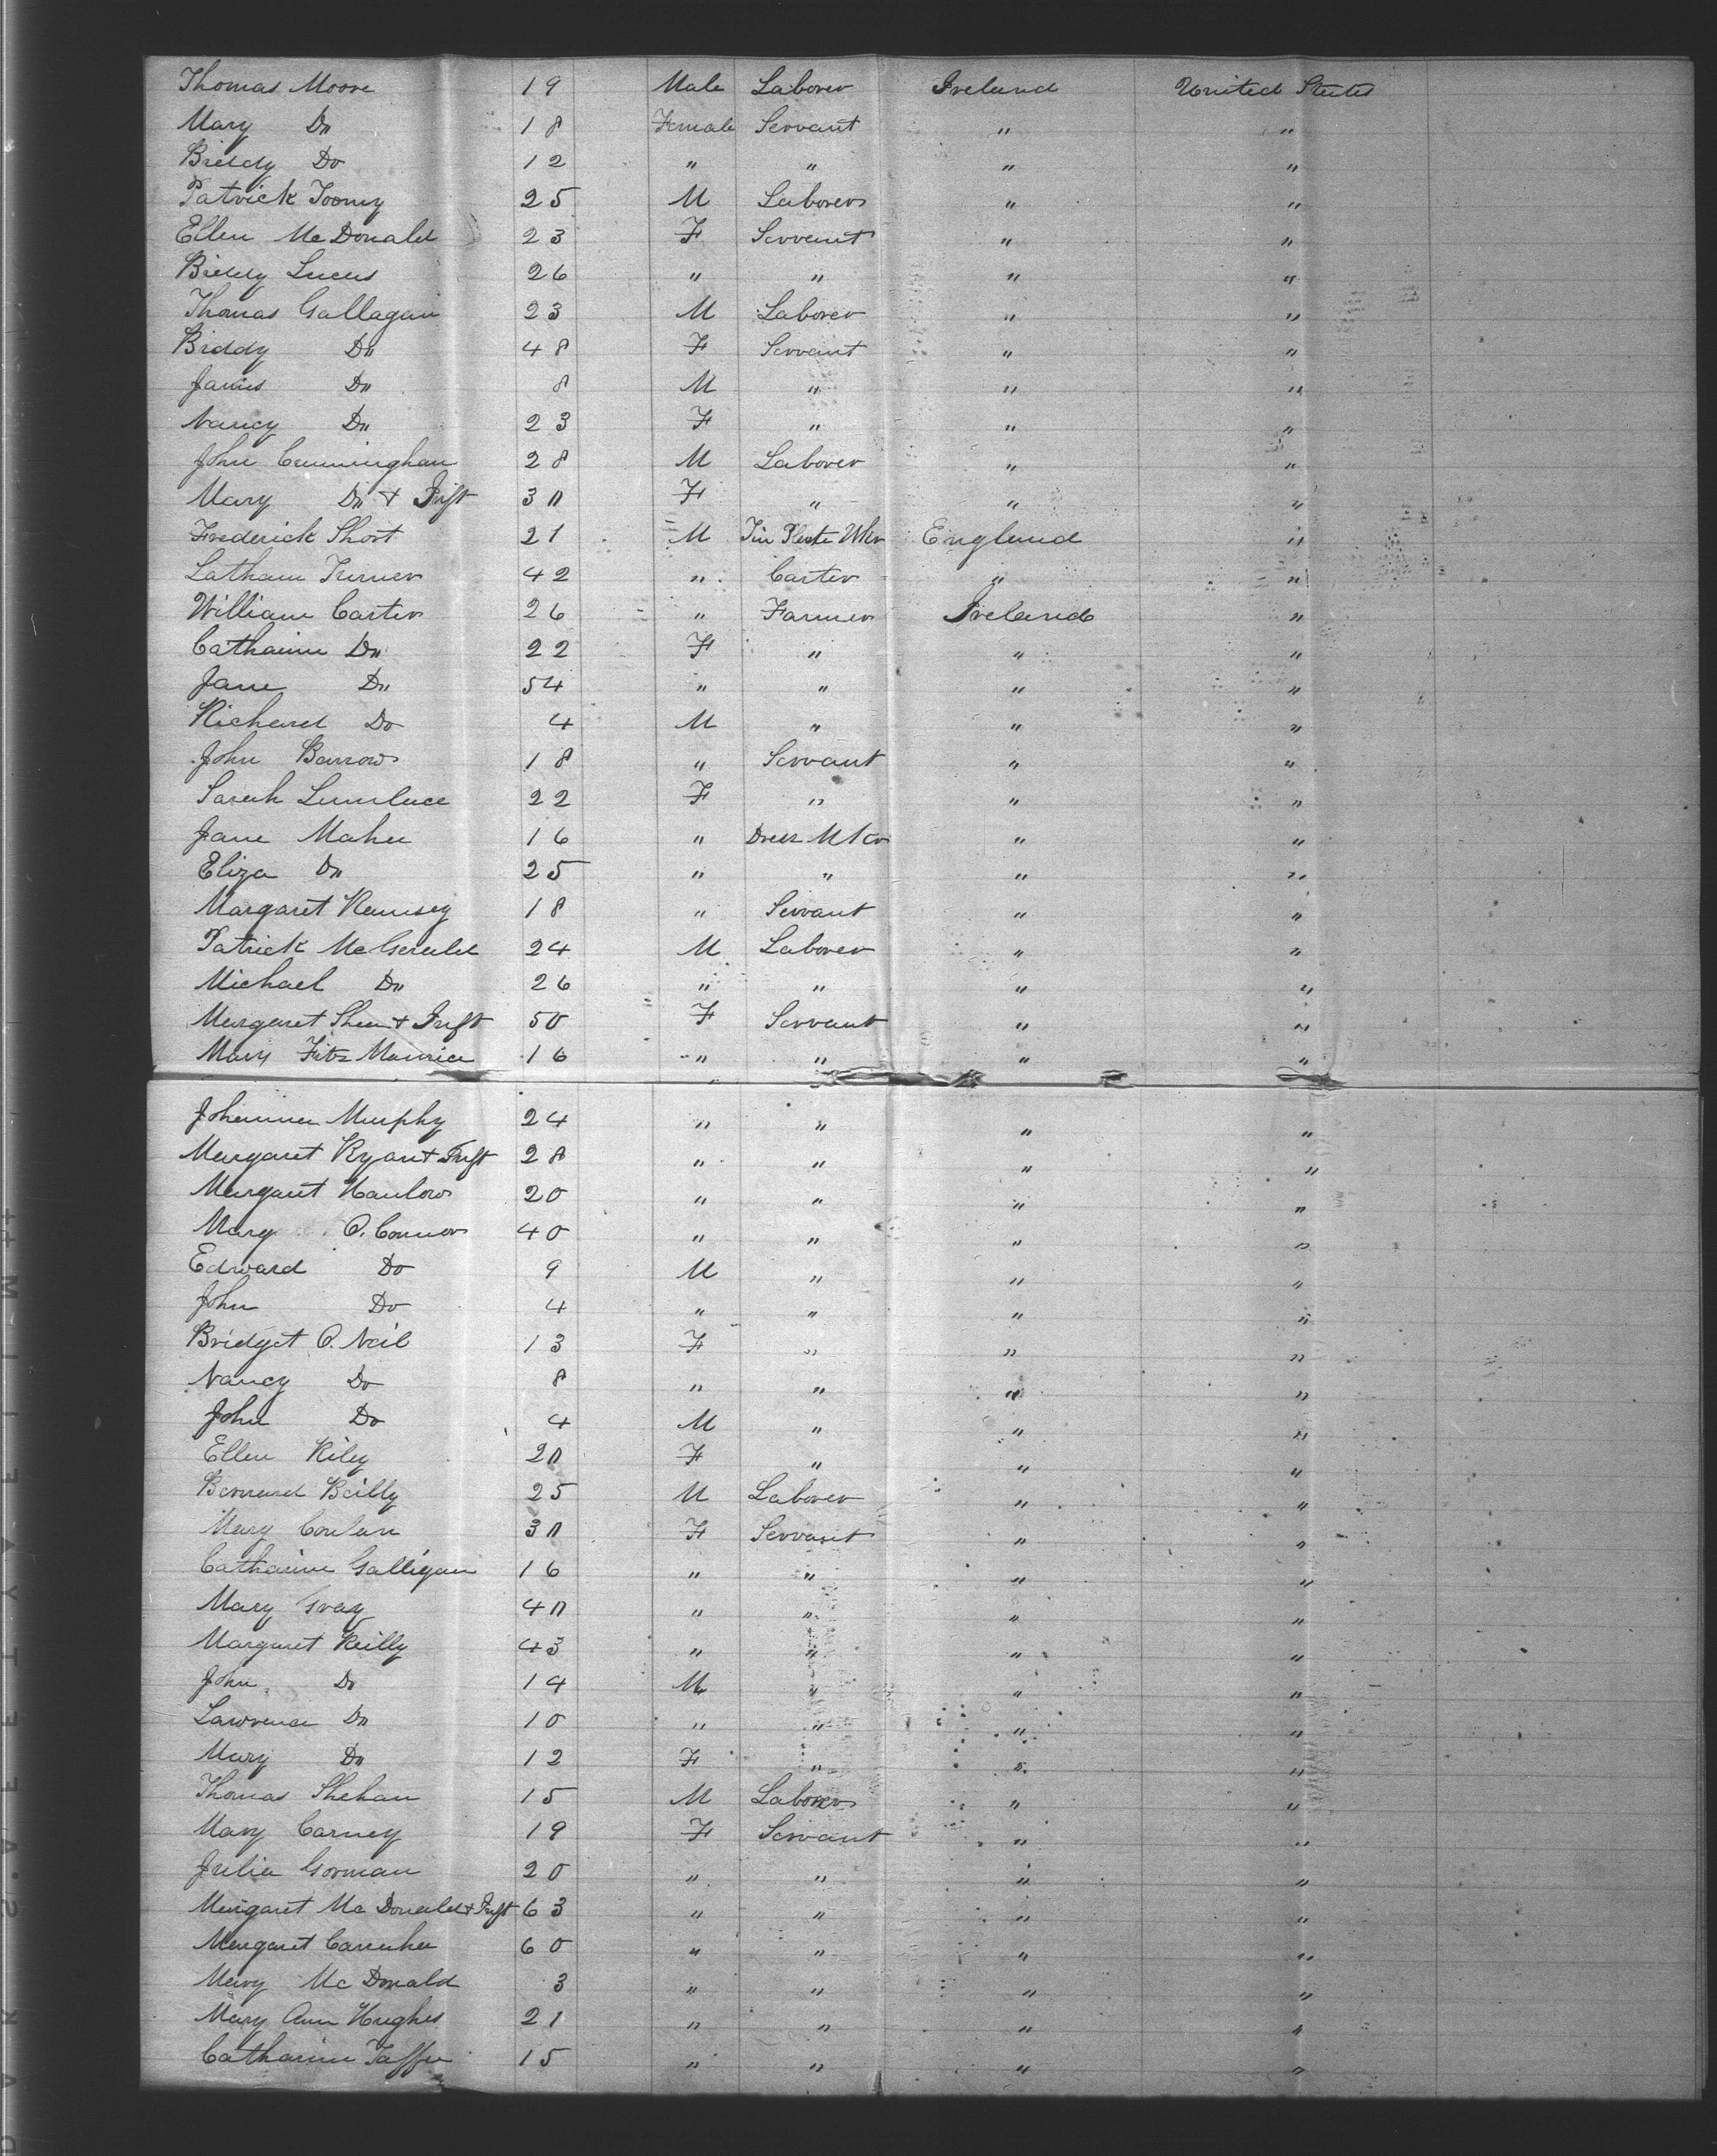 Thomas Moore 19 Male Laborer Ireland United States
Mary Do 18 Female Servant " "
Biddy Do 12 " " " "
Patrick Toomy 25 M Laborer " "
Ellen McDonald 23 F Servant " "
Biddy Lucus 26 " " " "
Thomas Gallagan 23 M Laborer " "
Biddy Do 48 F Servant " "
James Do 8 M " " "
Nancy Do 23 F " " "
John Cunningham 28 M Laborer " "
Mary Do + Inft 30 F " " "
Frederick Short 21 M Tin Plate Wkr England "
Latham Turner 42 " Carter " "
William Carter 26 " Farmer Ireland "
Catharine Do 22 F " " "
Jane Do 54 " " " "
Richard Do 4 M " " "
John Barrow 18 " Servant " "
Sarah 22 F " " "
Jane Maher 16 " Dress Mkr " "
Eliza Do 25 " " " "
Margaret Ramsey 18 " Servant " "
Patrick McGerald 24 M Laborer " "
Michael Do 26 " " " "
Margaret Shea + Inft 50 F Servant " "
Mary Fitz Maurice 16 " " " "
Johanna Murphy 24 " " " "
Margaret Ryan + Inft 28 " " " "
Margaret Hanlow 20 " " " "
Mary O. Connor 40 " " " "
Edward Do 9 M " " "
John Do 4 " " " "
Bridget O. Neil 13 F " " "
Nancy Do 8 " " " "
John Do 4 M " " "
Ellen Riley 20 F " " "
Bernard Reilly 25 M Laborer " "
Mary Conlan 30 F Servant " "
Catharine Galligan 16 " " " "
Mary Gray 40 " " " "
Margaret Reilly 43 " " " "
John Do 14 M " " "
Lawrence Do 10 " " " "
Mary Do 12 F " " "
Thomas Shehan 15 M Laborer " "
Mary Carney 19 F Servant " "
Julia Gorman 20 " " " "
Margaret McDonald + Inft 63 " " " "
Margaret 60 " " " "
Mary McDonald 3 " " " "
Mary Ann Hughes 21 " " " "
Catharine Taffee 15 " " " "